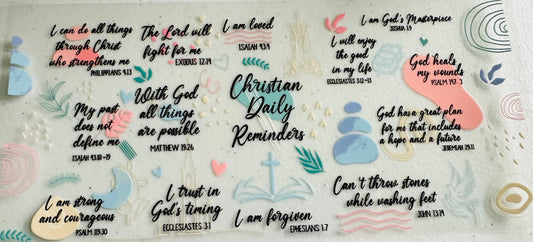 I can do all things
through Christ
who strengthens me
PHILIPPIANS 4:13
The Lord will
fight for me
EXODUS 12:14
I am loved
ISAIAH 43:4
I am God's Masterpiece
JOSHUA 1:5
I will enjoy
the good
in my life
ECCLESIASTES 3:12-13
God heals
my wounds
PSALM 147: 3
My past
does not
define me
ISAIAH 43:18-19
With God
all things
are possible
MATTHEW 19:26
Christian
Daily
Reminders
God has a great plan
for me that includes
a hope and a future
JEREMIAH 29:11
I am strong
and courageous
PSALM 119:30
I trust in
God's timing
ECCLESIASTES 3:1
I am forgiven
EPHESIANS 1:7
Can't throw stones
while washing feet
JOHN 13:14